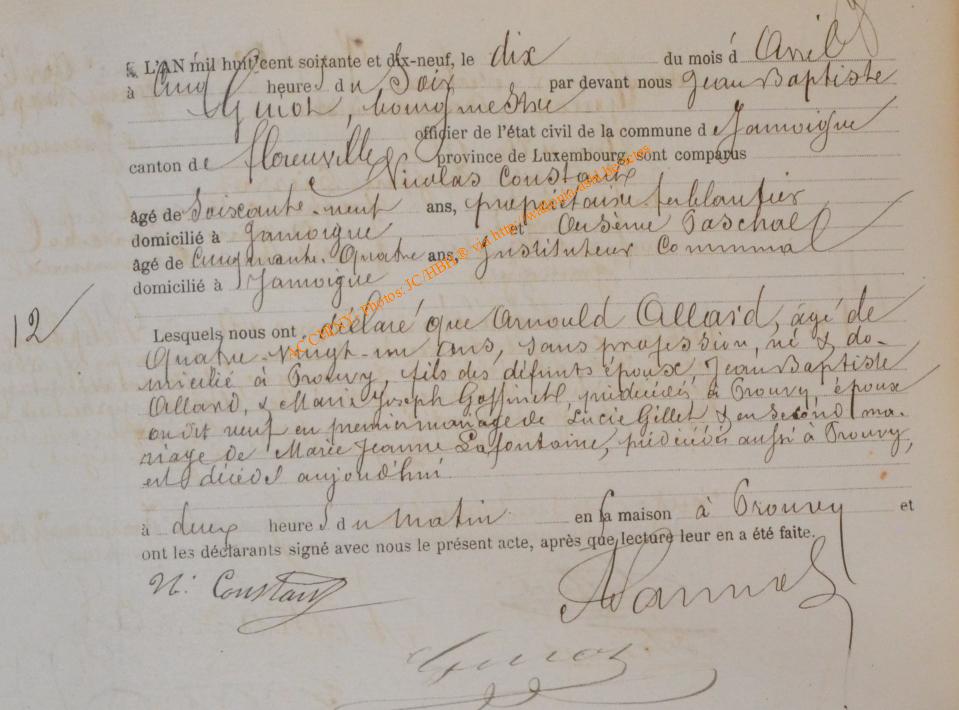 L'AN mil huit cent soixante et dix-neuf, le dix du mois d'Avril
à Cinq heures du Soir par devant nous Jean Baptiste
Guiot, bourgmestre
officier de l'état civil de la commune de Jamoigne
canton de florenville province de Luxembourg, sont comparus
Nicolas Constant
âgé de Soixante-neuf ans, propriétaire ferblantier
domicilié à Jamoigne et Arsène Paschal
âgé de Cinquante-Quatre ans, Instituteur Communal
domicilié à Jamoigne
12
Lesquels nous ont déclaré que Arnould Allard, âgé de
Quatre-vingt-un ans, sans profession, né & do-
micilié à Prouvy, fils des défunts époux Jean Baptiste
Allard, & Marie Joseph Goffinet, prédécédés à Prouvy, époux
en premier mariage de Lucie Gillet & en second ma-
riage de Marie Jeanne Lafontaine, prédécédées aussi à Prouvy,
est décédé aujourd'hui
à deux heures du matin en sa maison à Prouvy et
ont les déclarants signé avec nous le présent acte, après que lecture leur en a été faite.
N. Constant
Guiot
Photos: JC/HBH ® via http://www